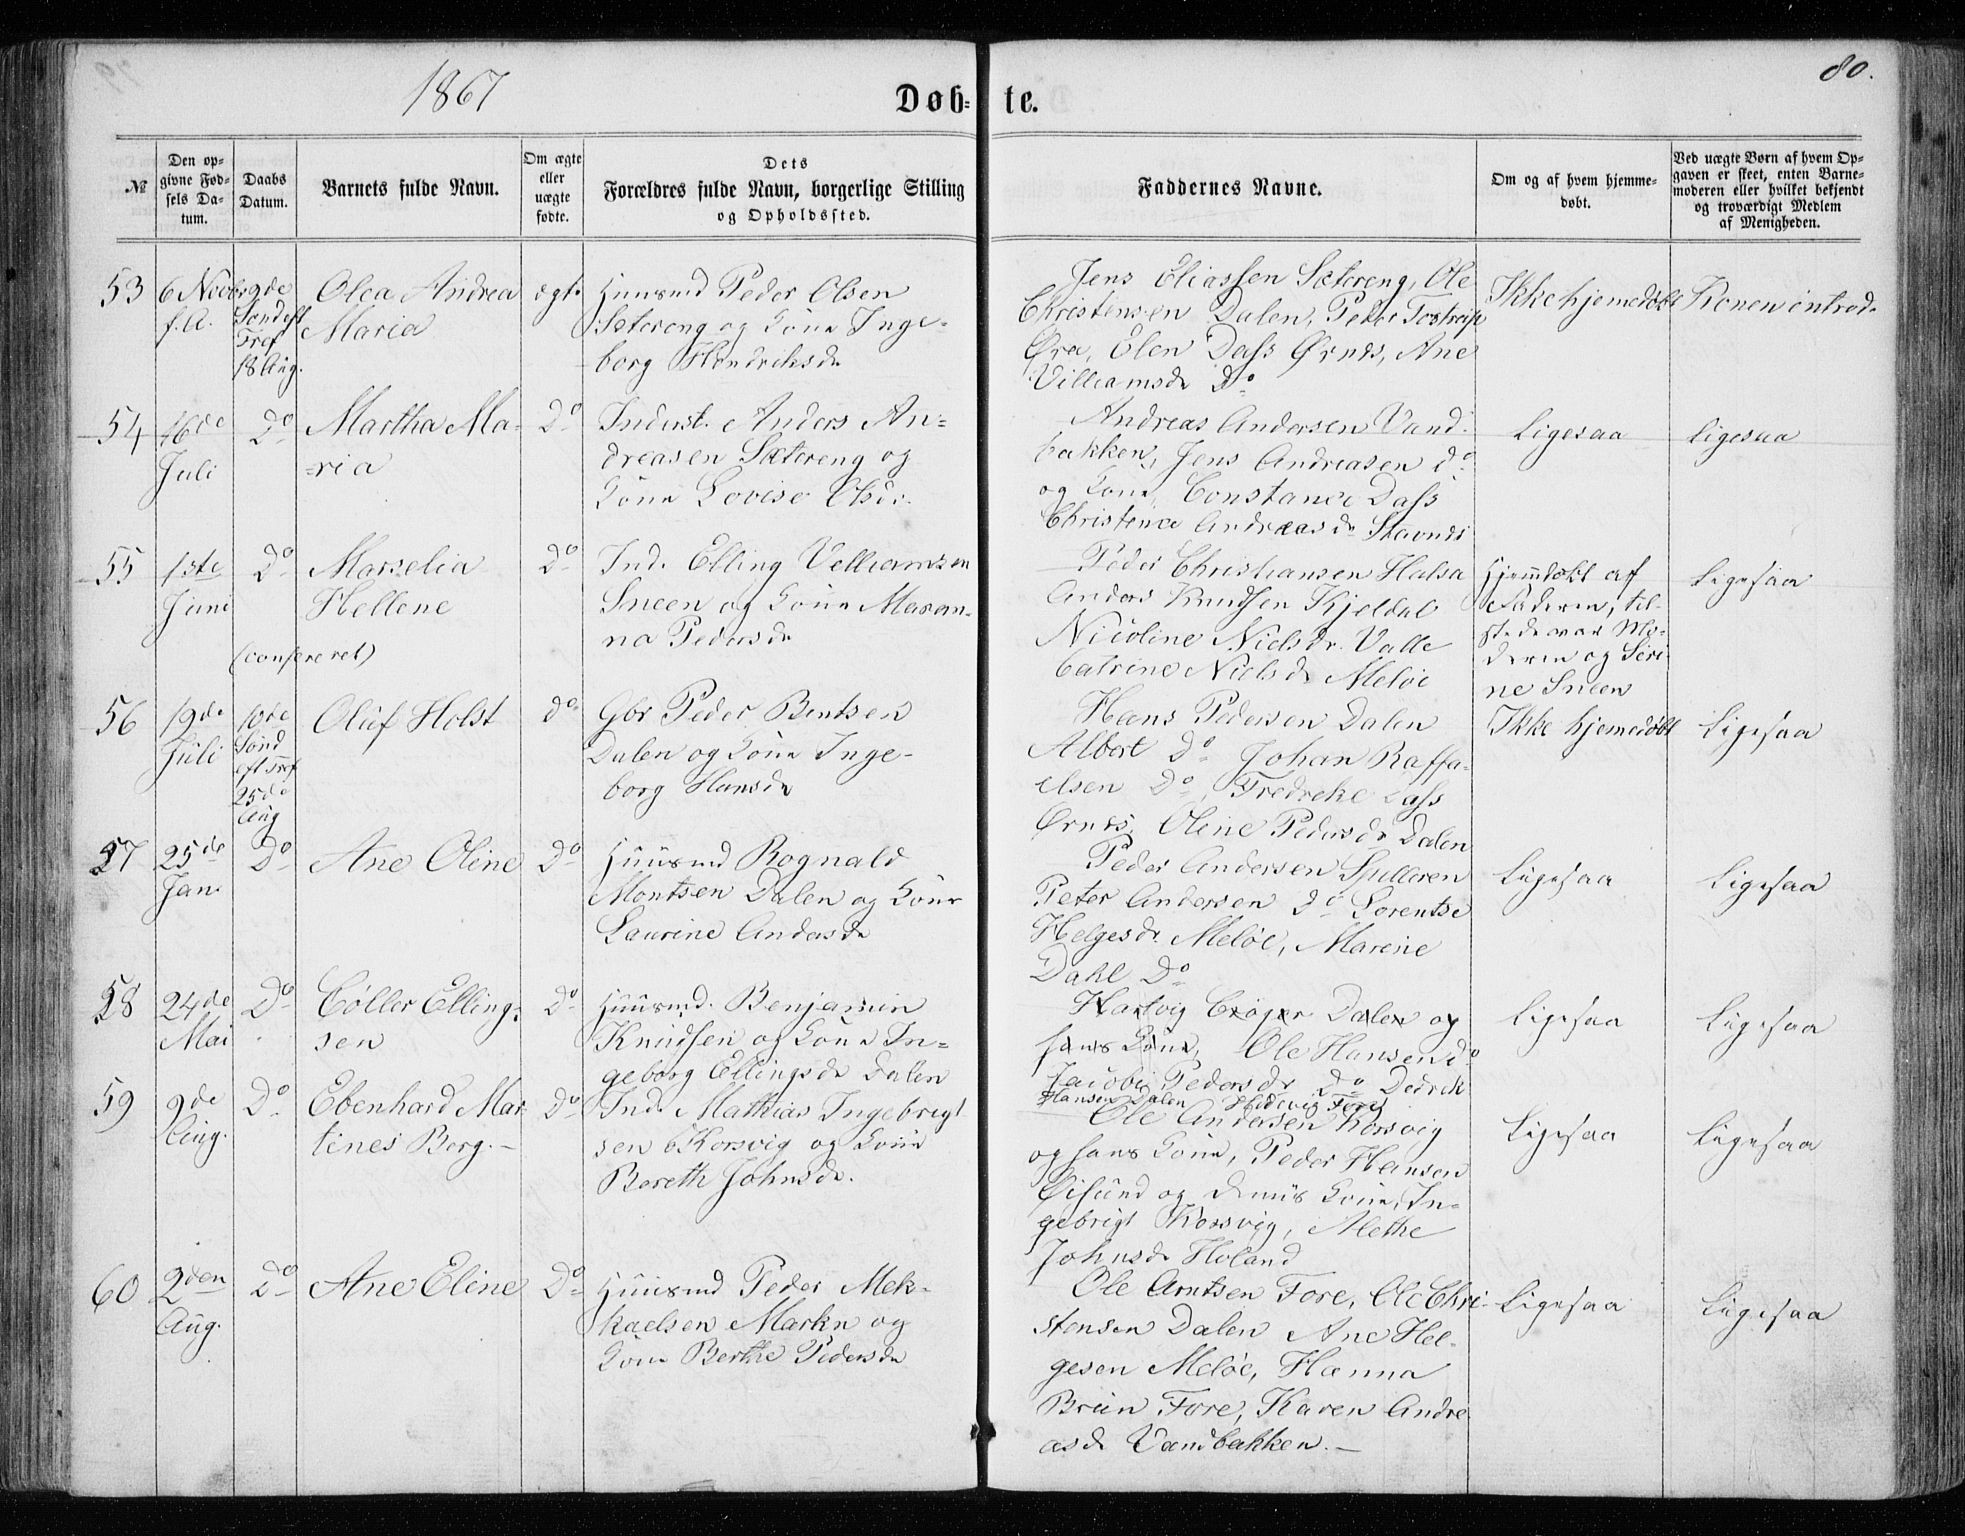 1867
Døb-te.
80.
№
Den op-
givne Fød-
sels Da-
tum.
Daabs
Datum.
Barnets fulde Navn.
Om ægte
eller
uægte
fødte.
Dets
Forældres fulde Navn, borgerlige Stilling
og Opholdssted.
Faddernes Navne.
Om og af hvem hjemme-
døbt.
Ved uægte Børn af hvem Op-
gaven er skeet, enten Barne-
moderen eller hvilket bekjendt
og troværdigt Medlem
af Menigheden.
53
6 Novbr
f. A.
9de
Søndefl
Tref
18 Aug.
Olea Andrea
Maria
ægt.
Huusmd Peder Olsen
Sætereng og Kone Inge-
borg Hendriksdr
Jens Eliassen Sætereng, Ole
Christensen Dalen, Peter Tostrup
Øra, Elen Dass Ørnes, Ane
Villiamsdr Do
Ikke hjemedøbt
Konen introd.
54
16de
Juli
Do
Martha Ma-
-ria
Do
Inderst. Anders An-
dreasen Sætereng og
Kone Lovise Olsdr.
Andreas Andersen Vand-
bakken, Jens Andreasen do
og Kone, Constance Dass
Christence Andreasdr Stavnes
Ligesaa
ligesaa
55
1ste
Juni
Do
Marselia
Hellene
(confereret)
Do
Ind. Elling Velliamsen
Sneen og Kone Marean-
na Pedersdr
Peder Christiansen Halsa
Anders Knudsen Kjeldal
Nicoline Nielsdr. Valle
Catrine Nielsdr Meløe
Hjemdøbt af
Faderen, til-
stede var Mo-
deren og Seri-
ne Sneen
Ligesaa
56
19de
Juli
10de
Sønd
eft Tref
25de
Aug
Oluf Holst
do
Gbr Peder Bentsen
Dalen og Kone Inge-
borg Hansdr
Hans Pedersen Dalen
Albert Do Johan Raffa-
elsen Do, Fredreke Dass
Ørnes, Oline Pedersdr Dalen
Ikke hjemedøbt
Ligesaa
57
25de
Jan.
Do
Ane Oline
Do
Huusmd Rognald
Montsen Dalen og Kone
Laurine Andersdr
Peder Andersen Spilderen
Peter Andersen do Lorentse
Helgesdr Meløe, Marine
Dahl Do
Ligesaa
Ligesaa
58
24de
Mai
Do
Cøller Elling-
sen
Do
Huusmd. Benjamin
Knudsen og Kone In-
geborg Ellingsdr Dalen
Hartvig Crøger Dalen og
hans Kone, Ole Hansen do
Jacobi Pedersdr Do Dedrek
Hansen Dalen Hedevig Fore
Ligesaa
Ligesaa
59
9de
Aug.
Do
Ebenhard Mar-
tines Berg.-
Do
Ind. Mathias Ingebrigt
sen Korsvig og Kone
Bereth Johnsdr.
Ole Andersen Korsvig
og hans Kone, Peder Hansen
Øisund og dennis Kone, In-
gebrigt Korsvig, Methe
Johnsdr Holand
Ligesaa
Ligesaa
60
2den
Aug.
Do
Ane Eline
Do
Huusmd Peder Mek-
kaelsen Markn og
Kone Berthe Pedersdr
Ole Arntsen Fore, Ole Chri-
stensen Dalen Ane Hel-
gesen Meløe, Hanna
Bruun Fore, Karen Andre
asdr Vandbakken.-
Ligesaa
Ligesaa